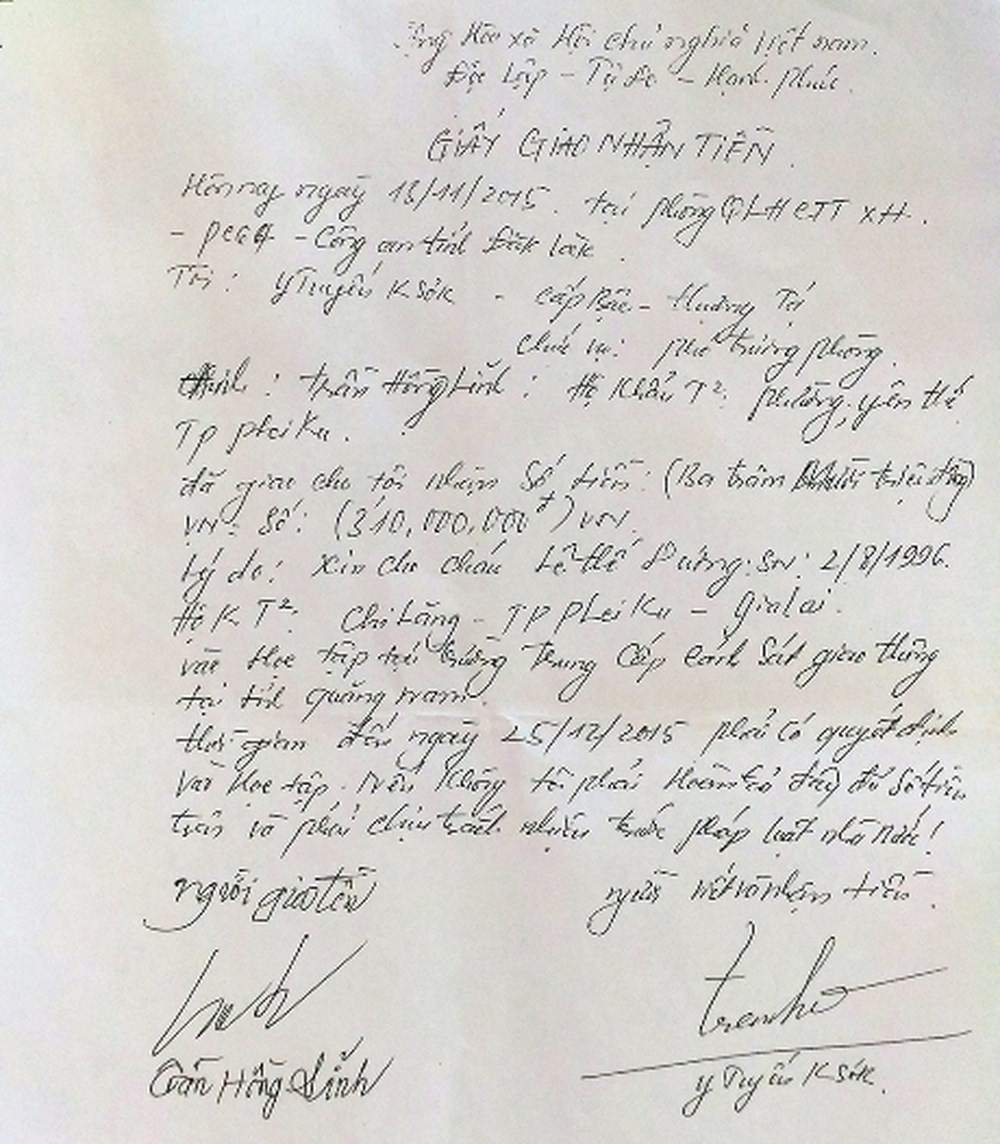 Hòa xã Hội chủ nghĩa Việt nam.
Độc Lập - Tự do - Hạnh phúc.
GIẤY GIAO NHẬN TIỀN.
Hôm nay ngày 13/11/2015. tại phòng QLHCTTXH.
- PC64 - Công an tỉnh Đăk Lăk.
Tôi: Y Tuyến KSơK - Cấp Bậc - Thượng Tá
chức vụ: phó trưởng phòng.
: trần Hồng Lĩnh: Hộ Khẩu T²: phường, yên thế
TP pleiKu.
đã giao cho tôi nhận Số tiền: (Ba trăm mười triệu đồng)
VN: Số: (310,000,000đ) VN.
Lý do: Xin cho cháu Lê thế Dương. SN: 2/8/1996.
Hộ K T²: Chi Lăng - TP PLeiKu - Gia Lai.
vào Học tập tại trường Trung Cấp Cảnh Sát giao thông
tại tỉnh quảng nam.
thời gian đến ngày 25/12/2015 phải có quyết định
vào Học tập. Nếu không tôi phải Hoàn trả đầy đủ số tiền
trên và phải chịu trách nhiệm trước pháp luật nhà nước!
người giao tiền
người viết và nhận tiền.
Trần Hồng Lĩnh
Y Tuyến KSơK.